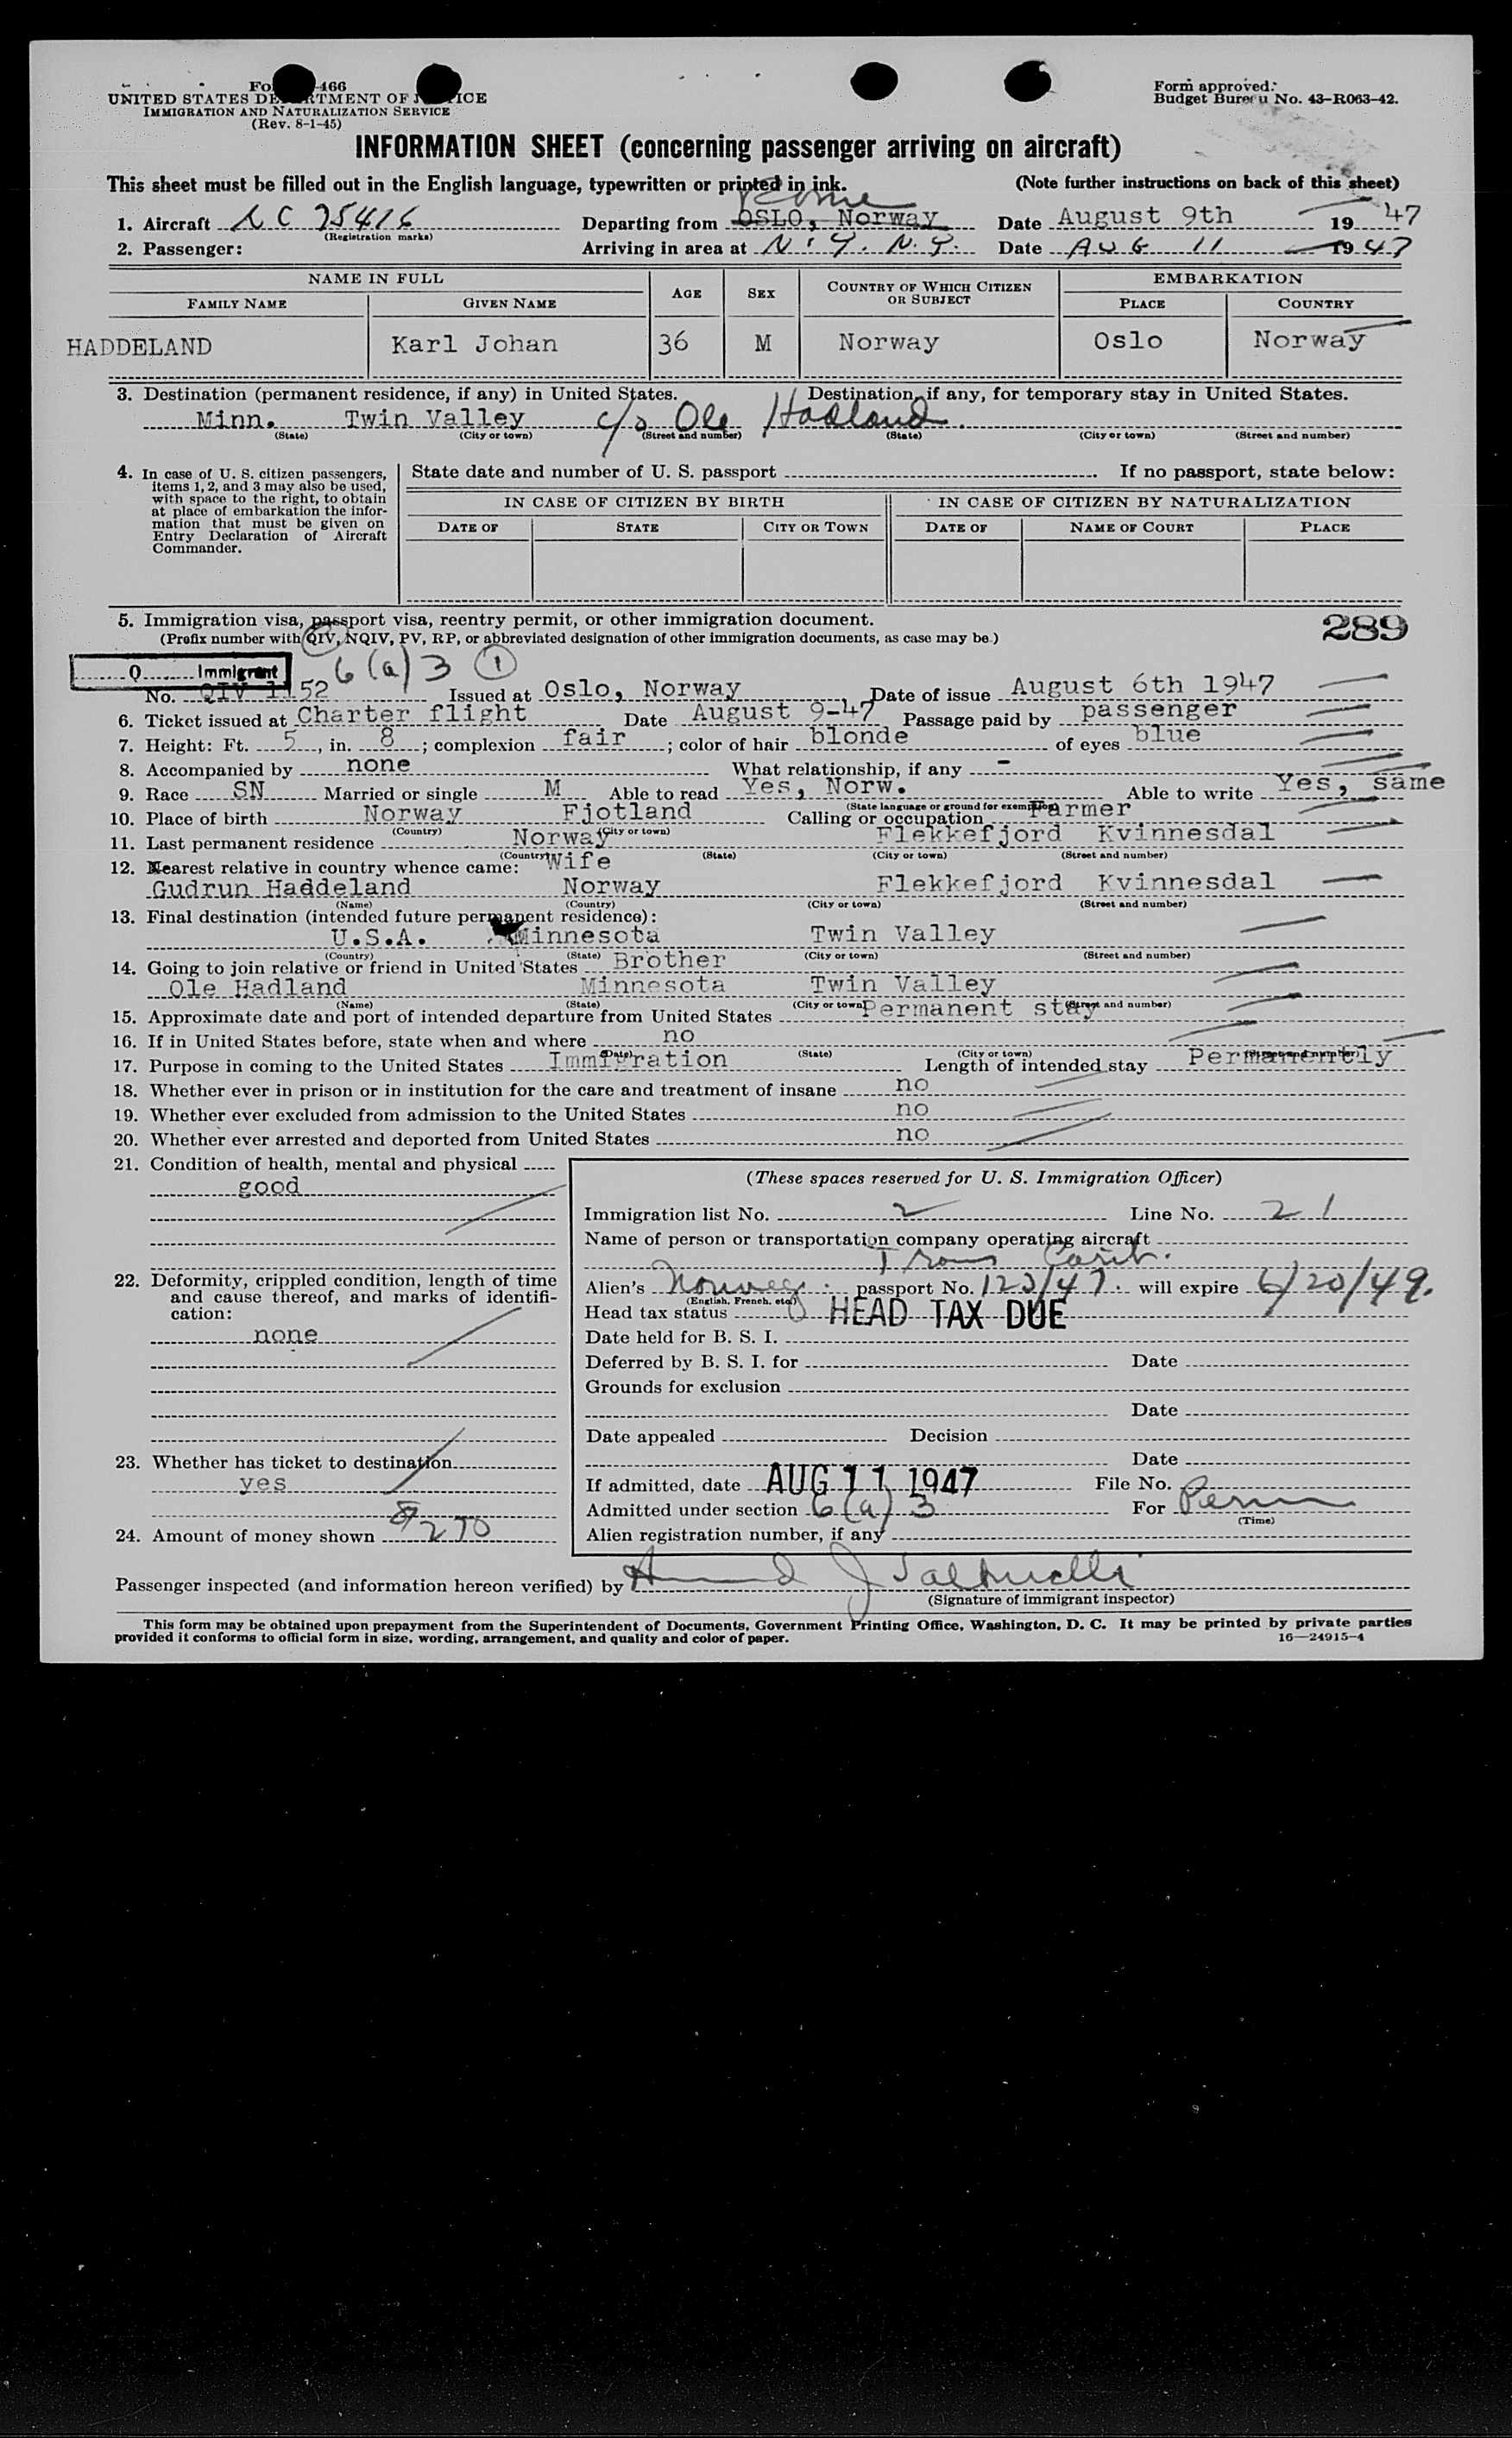 UNITED STATES DEPARTMENT OF JUSTICE
IMMIGRATION AND NATURALIZATION SERVICE
(Rev. 8-1-45)
Form approved.
Budget Bureau No. 43-R063-42.
INFORMATION SHEET (concerning passenger arriving on aircraft)
This sheet must be filled out in the English language, typewritten or printed in ink. (Note further instructions on back of this sheet)
Rome
1. Aircraft NC 75416 Departing from OSLO, Norway Date August 9th 1947
(Registration marks)
2. Passenger: Arriving in area at N.Y. N.Y. Date AUG 11 1947
NAME IN FULL AGE SEX COUNTRY OF WHICH CITIZEN OR SUBJECT EMBARKATION
FAMILY NAME GIVEN NAME PLACE COUNTRY
HADDELAND Karl Johan 36 M Norway Oslo Norway
3. Destination (permanent residence, if any) in United States. Destination, if any, for temporary stay in United States.
Minn. Twin Valley c/o Ole Hadland
(State) (City or town) (Street and number) (State) (City or town) (Street and number)
4. In case of U. S. citizen passengers, items 1, 2, and 3 may also be used, with space to the right, to obtain at place of embarkation the information that must be given on Entry Declaration of Aircraft Commander.
State date and number of U. S. passport If no passport, state below:
IN CASE OF CITIZEN BY BIRTH IN CASE OF CITIZEN BY NATURALIZATION
DATE OF STATE CITY OR TOWN DATE OF NAME OF COURT PLACE
5. Immigration visa, passport visa, reentry permit, or other immigration document. 289
(Prefix number with QIV, NQIV, PV, RP, or abbreviated designation of other immigration documents, as case may be.)
Q Immigrant 6(a)3 1
No. QIV 1152 Issued at Oslo, Norway Date of issue August 6th 1947
6. Ticket issued at Charter flight Date August 9-47 Passage paid by passenger
7. Height: Ft. 5, in. 8; complexion fair; color of hair blonde of eyes blue
8. Accompanied by none What relationship, if any -
9. Race SN Married or single M Able to read Yes, Norw. Able to write Yes, same
(State language or ground for exemption)
10. Place of birth Norway Fjotland Calling or occupation Farmer
(Country) (City or town)
11. Last permanent residence Norway Flekkefjord Kvinnesdal
(Country) (State) (City or town) (Street and number)
12. Nearest relative in country whence came: Wife
Gudrun Haddeland Norway Flekkefjord Kvinnesdal
(Name) (Country) (City or town) (Street and number)
13. Final destination (intended future permanent residence):
U.S.A. Minnesota Twin Valley
(Country) (State) (City or town) (Street and number)
14. Going to join relative or friend in United States Brother
Ole Hadland Minnesota Twin Valley
(Name) (State) (City or town) (Street and number)
15. Approximate date and port of intended departure from United States Permanent stay
16. If in United States before, state when and where no
(Date) (State) (City or town) (Street and number)
17. Purpose in coming to the United States Immigration Length of intended stay Permanently
18. Whether ever in prison or in institution for the care and treatment of insane no
19. Whether ever excluded from admission to the United States no
20. Whether ever arrested and deported from United States no
21. Condition of health, mental and physical
good
22. Deformity, crippled condition, length of time and cause thereof, and marks of identification:
none
23. Whether has ticket to destination
yes
24. Amount of money shown $270
(These spaces reserved for U. S. Immigration Officer)
Immigration list No. 2 Line No. 21
Name of person or transportation company operating aircraft
Trans Carib.
Alien's Norweg. passport No. 123/47. will expire 6/20/49.
(English, French, etc.)
Head tax status HEAD TAX DUE
Date held for B. S. I.
Deferred by B. S. I. for Date
Grounds for exclusion
Date
Date appealed Decision
Date
If admitted, date AUG 11 1947 File No.
Admitted under section 6(a)3 For Perm
(Time)
Alien registration number, if any
Passenger inspected (and information hereon verified) by
(Signature of immigrant inspector)
This form may be obtained upon prepayment from the Superintendent of Documents, Government Printing Office, Washington, D. C. It may be printed by private parties
provided it conforms to official form in size, wording, arrangement, and quality and color of paper. 16—24915-4